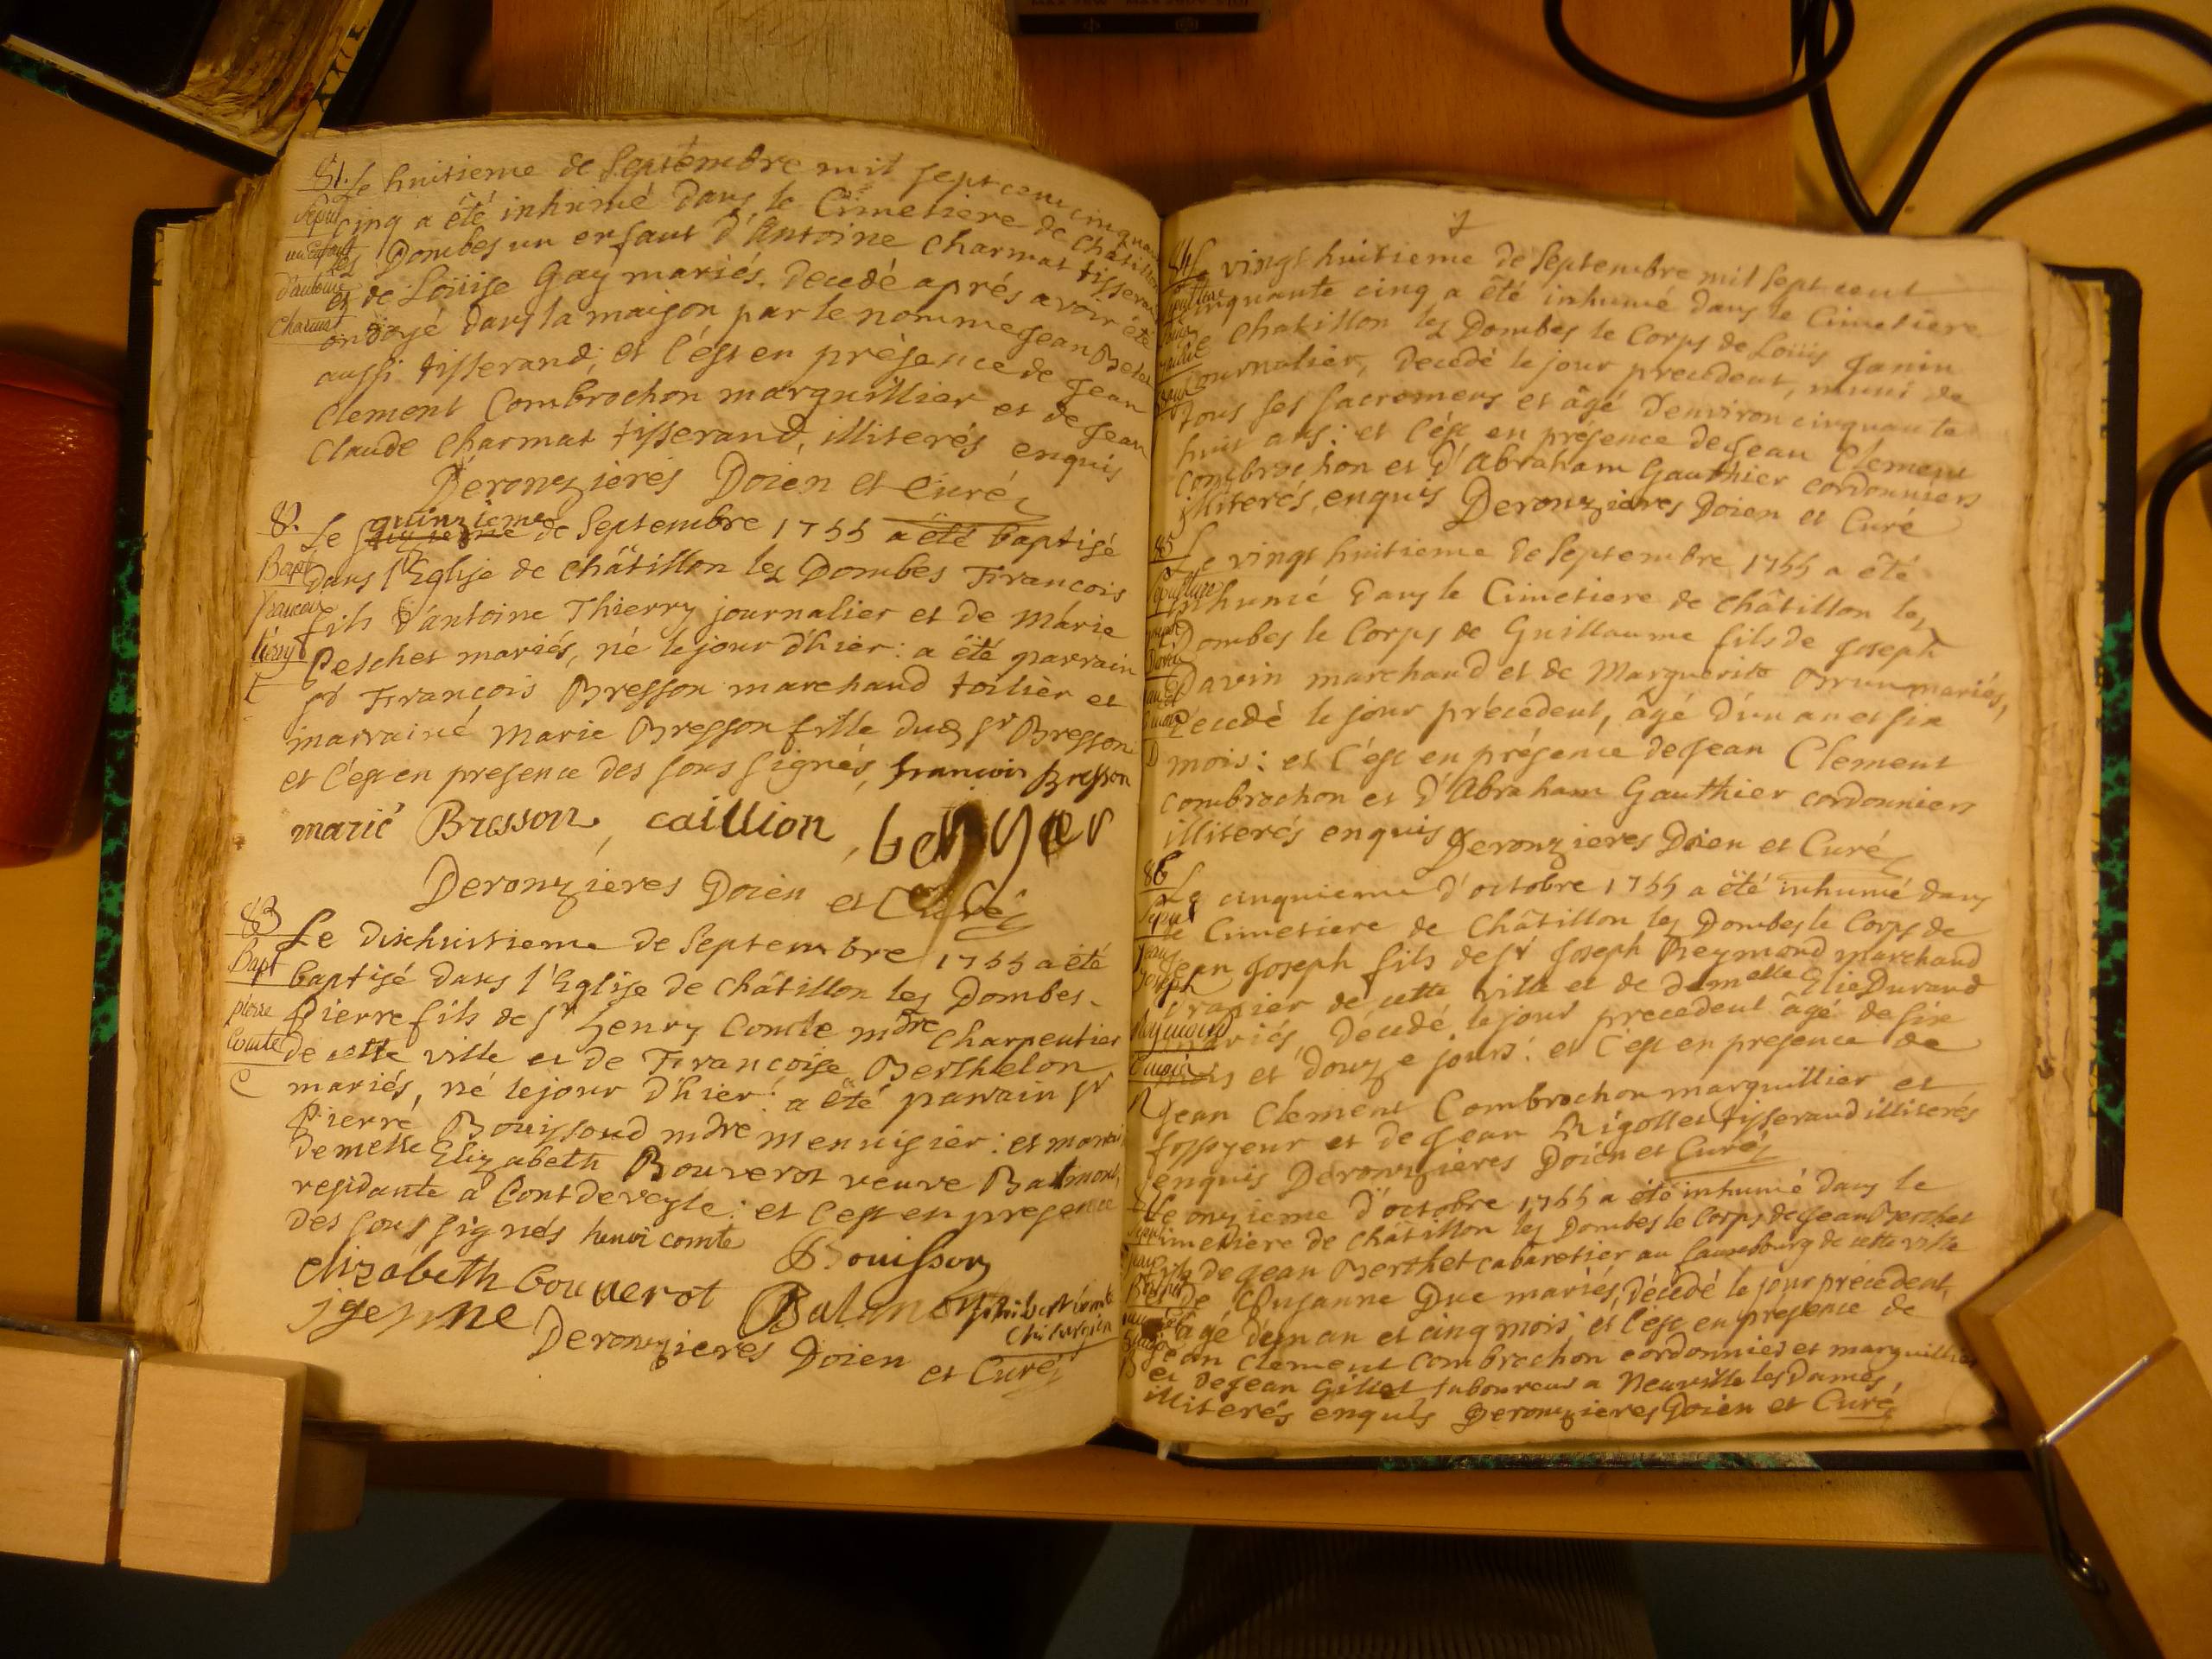 81. Le huitieme de Septembre mil sept cent cinquante
cinq a été inhumé dans le Cimetiere de Châtillon
les Dombes un enfant d'Antoine Charmat tisserand
et de Loüise Gay mariés, decedé aprés avoir été
ondoyé dans la maison par le nommé Jean
aussi tisserand, et c'est en présence de Jean
Clement Combrochon marguillier et de Jean
Claude Charmat tisserand, illiterés enquis
Deronzieres Doien et Curé
82.
Le quinzieme de Septembre 1755 a été baptisé
Bapt dans l'Eglise de Châtillon les Dombes Francois
fils d'antoine Thierry journalier et de Marie
Peschet mariés, né le jour d'hier: a été parrain
sr Francois Bresson marchand toilier et
marraine Marie Bresson fille dud sr Bresson
et c'est en presence des sous signés, francois Bresson
marie Bresson, caillion, berger
Deronzieres Doien et Curé
83 Le dixhuitieme de Septembre 1755 a été
Bapt baptisé dans l'Eglise de Châtillon les Dombes
pierre Pierre fils de sr henry Comte mdre Charpentier
Comte de cette ville et de Francoise Berthelon
C mariés, né le jour d'hier: a été parrain sr
Pierre Bouissoud mdre menuisier: et
demelle Elizabeth Bouverot veuve Balmont,
residante à Pontdeveyle: et c'est en presence
des sous signés henri comte
Bouisson
elizabeth bouverot Balmont philibert comte
jgenne chirurgien
Deronzieres Doien et Curé
84 Le vingt huitieme de Septembre mil sept cent
cinquante cinq a été inhumé dans le Cimetiere
de Chatillon les Dombes le Corps de Loüis Janin
journalier, decedé le jour precedent, muni de
tous ses sacremens et âgé d'environ cinquante
huit ans: et c'est en présence de Jean Clement
Combrochon et d'Abraham Gauthier cordonniers
illiterés, enquis Deronzieres Doien et Curé
85 Le vingt huitieme de Septembre 1755 a été
Sepulture inhumé dans le Cimetiere de Châtillon les
Dombes le Corps de Guillaume fils de Joseph
Davin marchand et de Marguerite Brun mariés,
decedé le jour précedent, âgé d'un an et six
D mois: et c'est en présence de Jean Clement
Combrochon et d'Abraham Gauthier cordonniers
illiterés enquis Deronzieres Doien et Curé
86 Le cinquieme d'octobre 1755 a été inhumé dans
Sepult le Cimetiere de Châtillon les Dombes le Corps de
Jean Joseph fils de sr Joseph Reymond marchand
drapier de cette ville et de demelle Elie Durand
mariés décedé le jour precedent âgé de six
mois et douze jours: et c'est en presence de
R Jean Clement Combrochon marguillier et
fossoyeur et de Jean Rigollet tisserand illiterés
enquis Deronzieres Doien et Curé
Le onzieme d'octobre 1755 a été inhumé dans le
Cimetiere de Châtillon les Dombes le Corps de Jean Berthet
fils de Jean Berthet cabaretier au fauxbourg de cette ville
et de Susanne Duc mariés, décedé le jour précedent,
âgé d'un an et cinq mois: et c'est en presence de
Jean Clement Combrochon cordonnier et marguillier
B et de Jean Gillet laboureur a Neuville les Dames,
illiterés enquis Deronzieres Doien et Curé